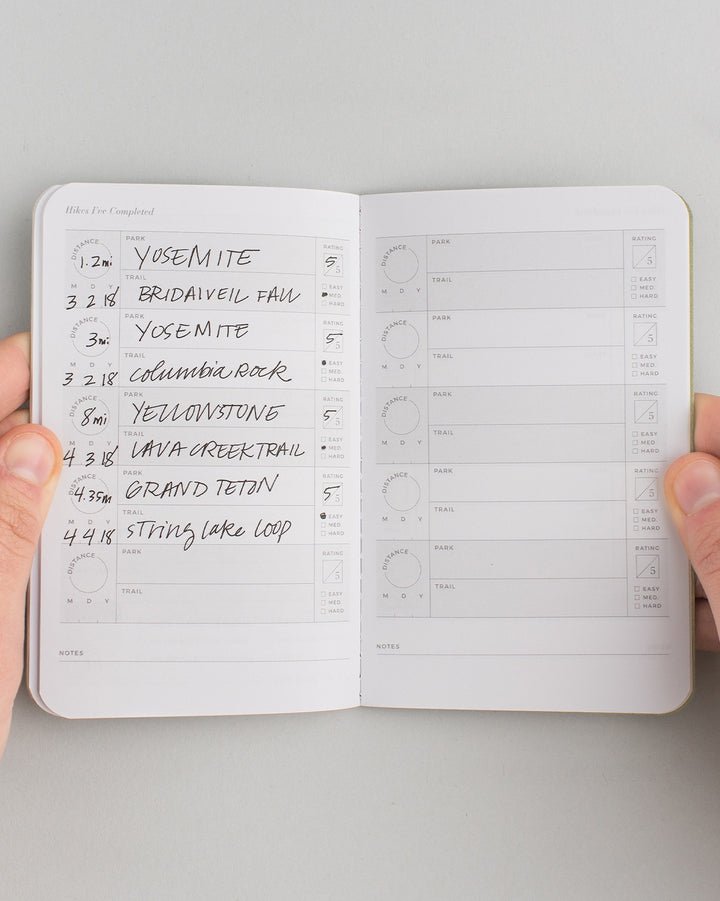 Hikes I've Completed
DISTANCE
1.2mi
PARK
YOSEMITE
RATING
5/5
M D Y
3 2 18
TRAIL
BRIDALVEIL FALL
EASY
MED.
HARD
DISTANCE
3mi
PARK
YOSEMITE
RATING
5/5
M D Y
3 2 18
TRAIL
Columbia Rock
EASY
MED.
HARD
DISTANCE
8mi
PARK
YELLOWSTONE
RATING
5/5
M D Y
4 3 18
TRAIL
LAVA CREEK TRAIL
EASY
MED.
HARD
DISTANCE
4.35m
PARK
GRAND TETON
RATING
5/5
M D Y
4 4 18
TRAIL
String Lake Loop
EASY
MED.
HARD
DISTANCE
PARK
RATING
/5
M D Y
TRAIL
EASY
MED.
HARD
NOTES
DISTANCE
PARK
RATING
/5
M D Y
TRAIL
EASY
MED.
HARD
DISTANCE
PARK
RATING
/5
M D Y
TRAIL
EASY
MED.
HARD
DISTANCE
PARK
RATING
/5
M D Y
TRAIL
EASY
MED.
HARD
DISTANCE
PARK
RATING
/5
M D Y
TRAIL
EASY
MED.
HARD
DISTANCE
PARK
RATING
/5
M D Y
TRAIL
EASY
MED.
HARD
NOTES